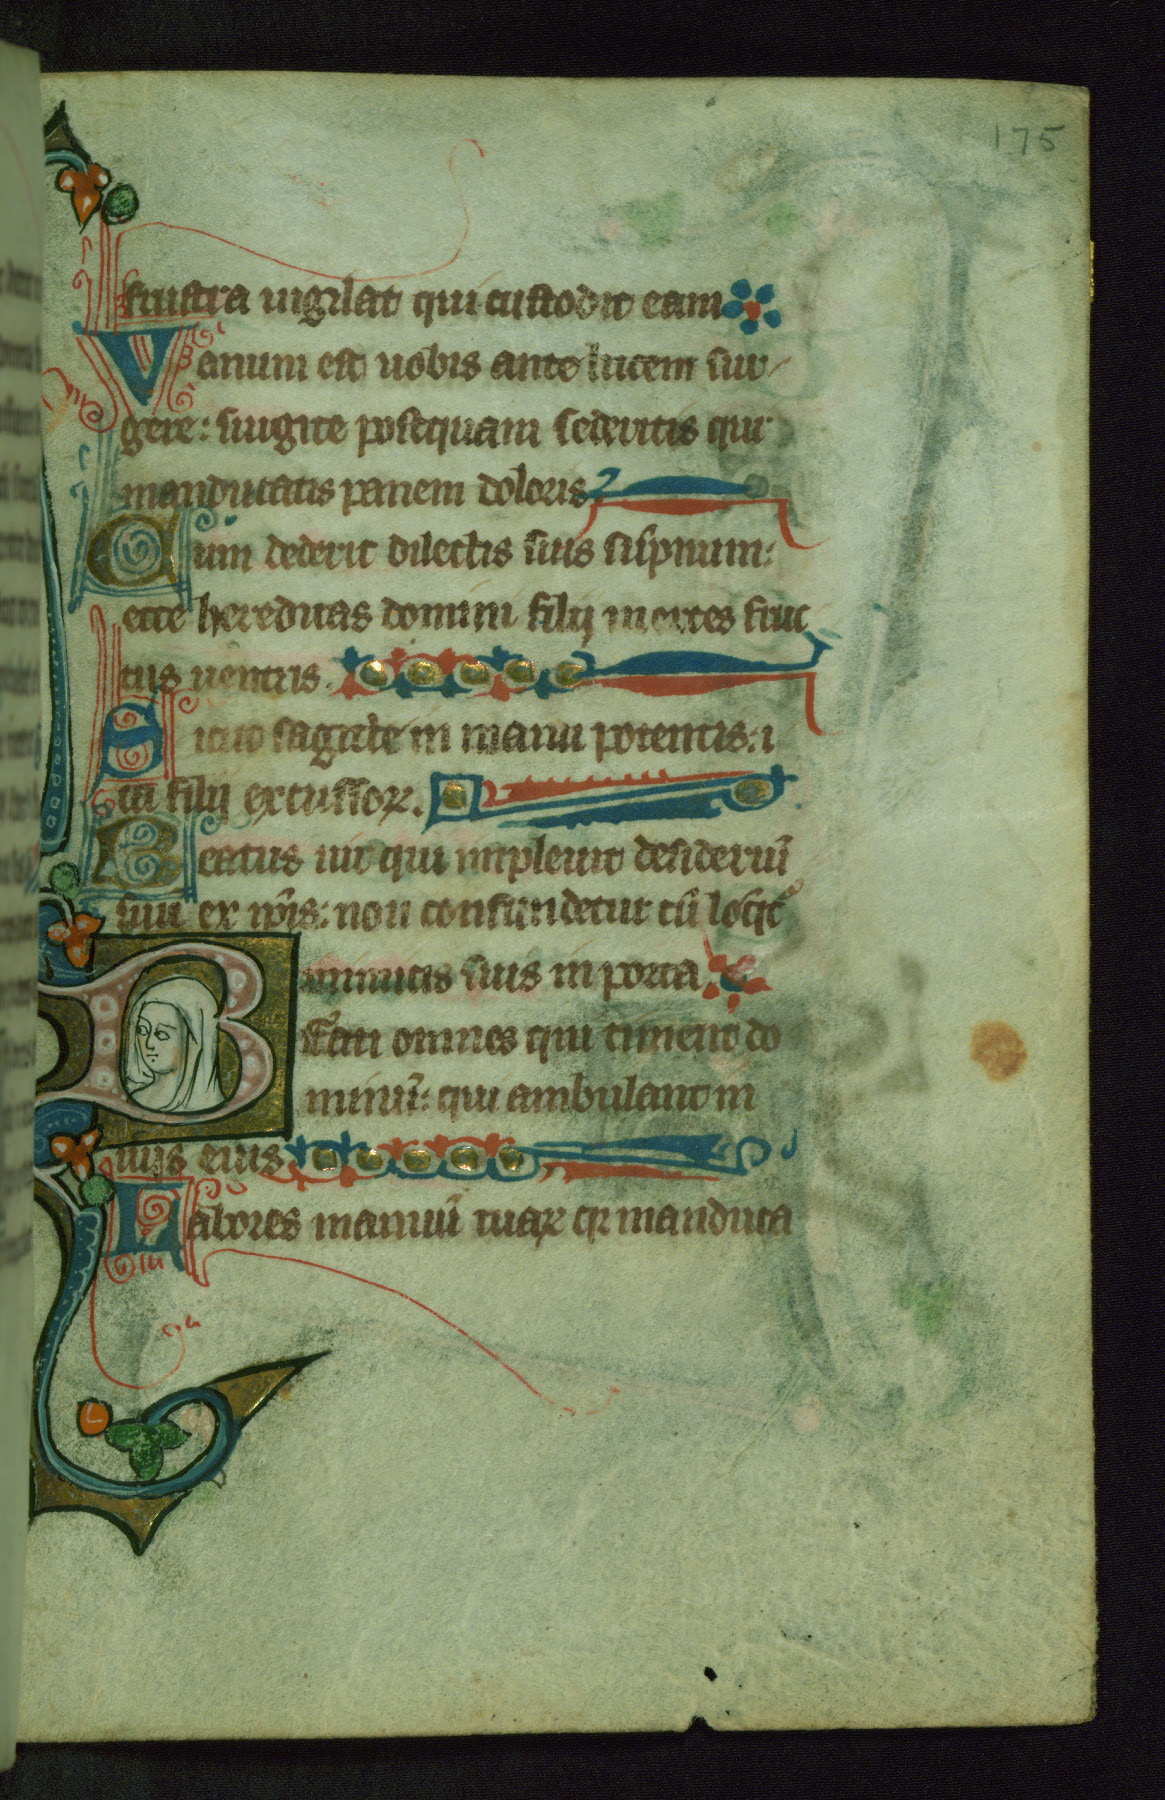 175
frustra uigilat qui custodit eam
Vanum est uobis ante lucem sur
gere: surgite postquam sederitis qui
manducatis panem doloris
Cum dederit dilectis suis sūpnum:
ecce hereditas domini filij merces fruc
tus uentris.
Sicut sagitte in manu potentis: i
ta filij excussoꝝ.
Beatus uir qui impleuit desideriū
suū ex ip̄is: non confundetur cū loq̄t᷑
inimicis suis in porta
Beati omnes qui timent do
minū: qui ambulant in
uijs eius
Labores manuū tuaꝝ qꝛ manduca